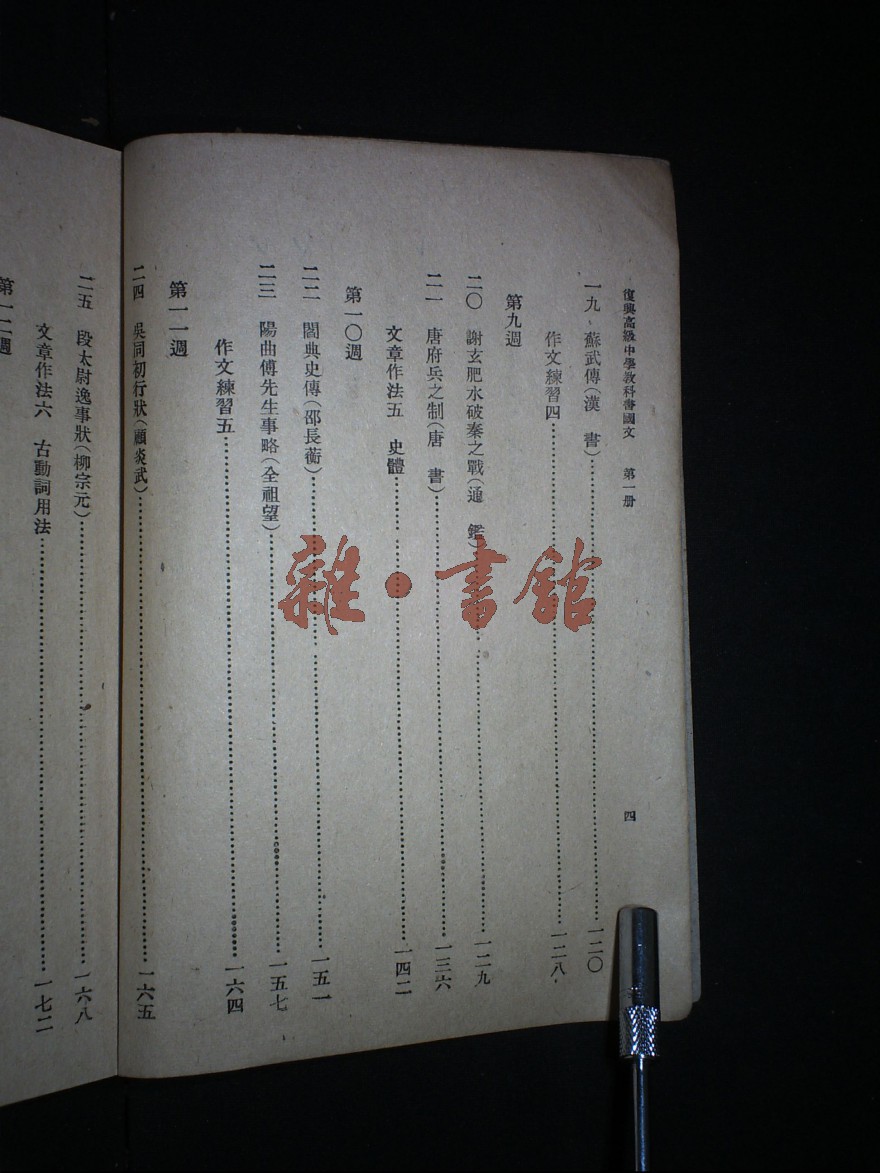 復興高級中學教科書國文　第一册　四
一九　蘇武傳（漢　書）……一二〇
作文練習四……一二八
第九週
二〇　謝玄肥水破秦之戰（通　鑑）……一二九
二一　唐府兵之制（唐　書）……一三六
文章作法五　史體……一四二
第一〇週
二二　閻典史傳（邵長蘅）……一五一
二三　陽曲傅先生事略（全祖望）……一五七
作文練習五……一六四
第一一週
二四　吳同初行狀（顧炎武）……一六五
二五　段太尉逸事狀（柳宗元）……一六八
文章作法六　古動詞用法……一七二
第一二週
雜·書館